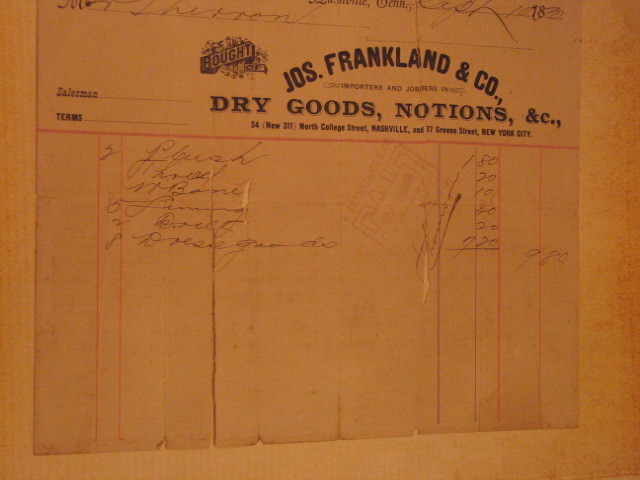 Nashville, Tenn., Sept 10 1880
BOUGHT OF
JOS. FRANKLAND & CO.,
IMPORTERS AND JOBBERS IN
DRY GOODS, NOTIONS, &c.,
54 (New 311) North College Street, NASHVILLE, and 17 Greene Street, NEW YORK CITY.
Salesman
TERMS
2 Plush 1 80
20
W Bone 10
5
2 Drill 20
8 Dress goods 7 20
9 80